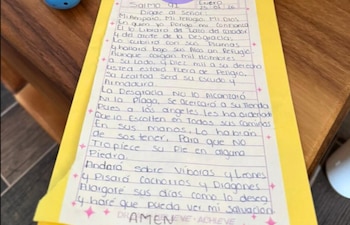 Salmo 91
Enero
Digale al Señor:
Mi Refugio, Mi Dios
En quien Yo Pongo mi Confianza
El lo Librará de lazo del Cazador
y del azote de la Desgracia
lo cubrirá con sus Plumas
y hallará bajo sus Alas un Refugio
Aunque caigan mil Hombres
a su lado y Diez mil a su derecha
Usted estará fuera de Peligro.
Su Lealtad será su Escudo y
Armadura
La Desgracia No lo Alcanzará
Ni la Plaga, se acercará a su Tienda
Pues a los angeles les ha ordenado
Que lo Escolten en Todos sus Caminos
En sus manos, lo habrán
de sostener. Para que no
Tropiece su Pie en alguna
Piedra.
Andará sobre Víboras y Leones
y Pisará Cachorros y Dragones
Alargaré sus días como lo desea
y haré que Pueda ver mi Salvación
AMEN
ACHIEVE